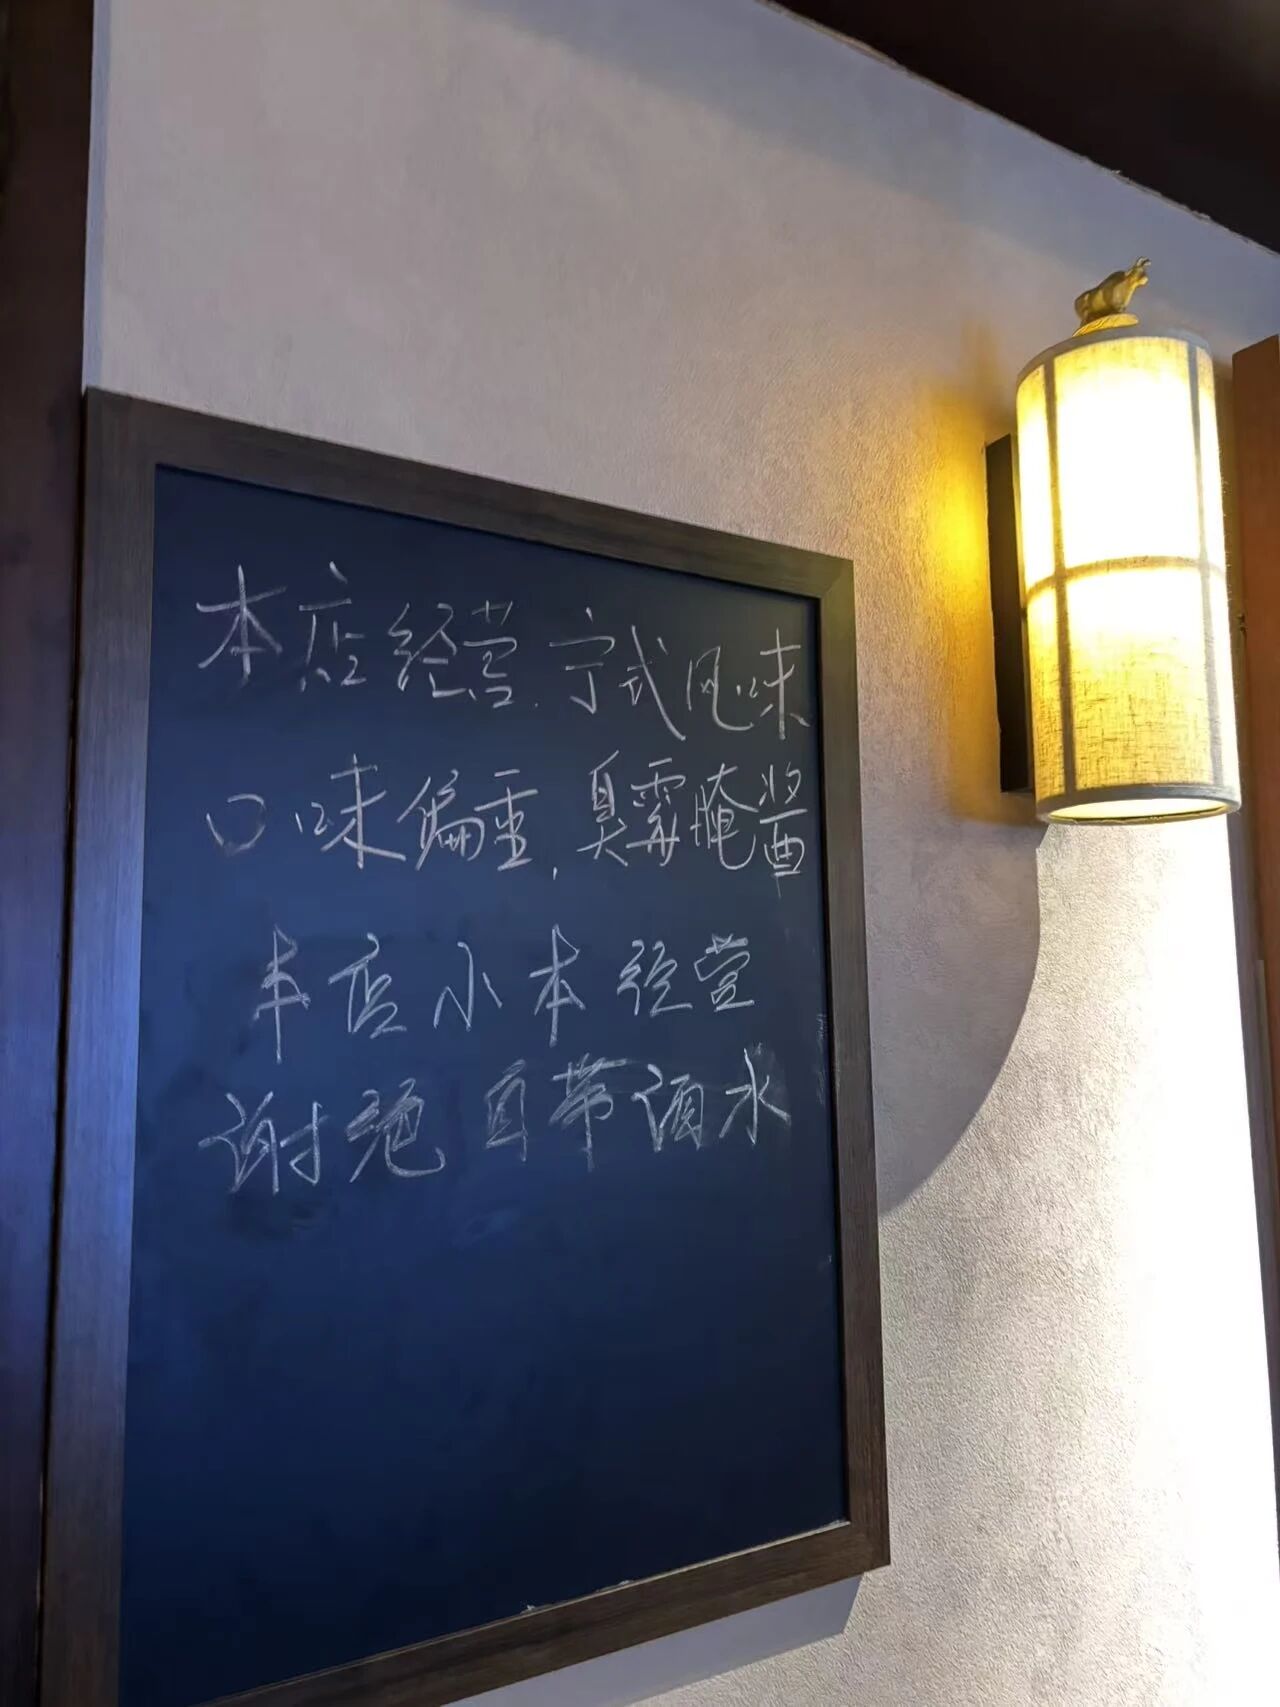 本店经营.宁式风味
口味偏重,臭霉腌酱
本店小本经营
谢绝自带酒水